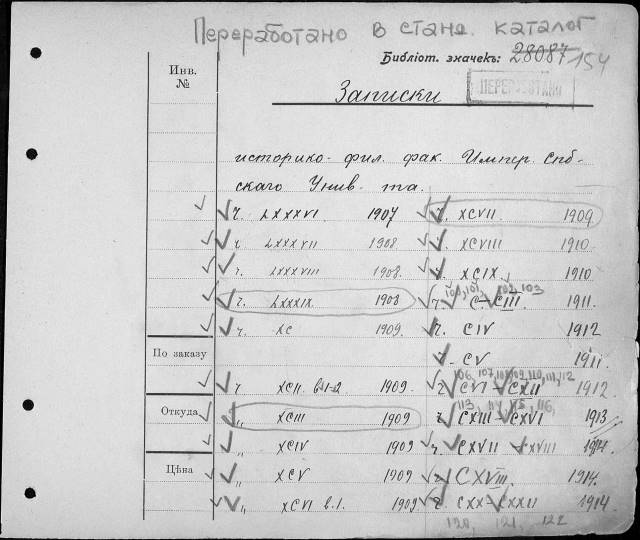 Переработано в станд. каталог
Библіот. значекъ: 28087 154
Инв. №
ПЕРЕРАБОТАНО
Записки
историко-фил. фак. Импер. Спб-
скаго Унив-та.
ч. LXXXVI 1907
ч. LXXXVII 1908.
ч. LXXXVIII 1908.
ч. LXXXIX 1908
ч. XC 1909.
ч. XCII в.1-2 1909.
„ XCIII 1909
„ XCIV 1909
„ XCV 1909
„ XCVI в.1. 1909
ч. XCVII 1909
ч. XCVIII 1910.
ч. XCIX 1910
100, 101, 102, 103
ч. C-CIII 1911.
ч. CIV 1912
ч. CV 1911.
106, 107, 108, 109, 110, 111, 112
ч. CVI-CXII 1912.
113, 114, 115, 116,
ч. CXIII-CXVI 1913
ч. CXVII CXVIII 1914.
ч. CXVIII 1914.
ч. CXX-CXXII 1914
120, 121, 122
По заказу
Откуда
Цѣна